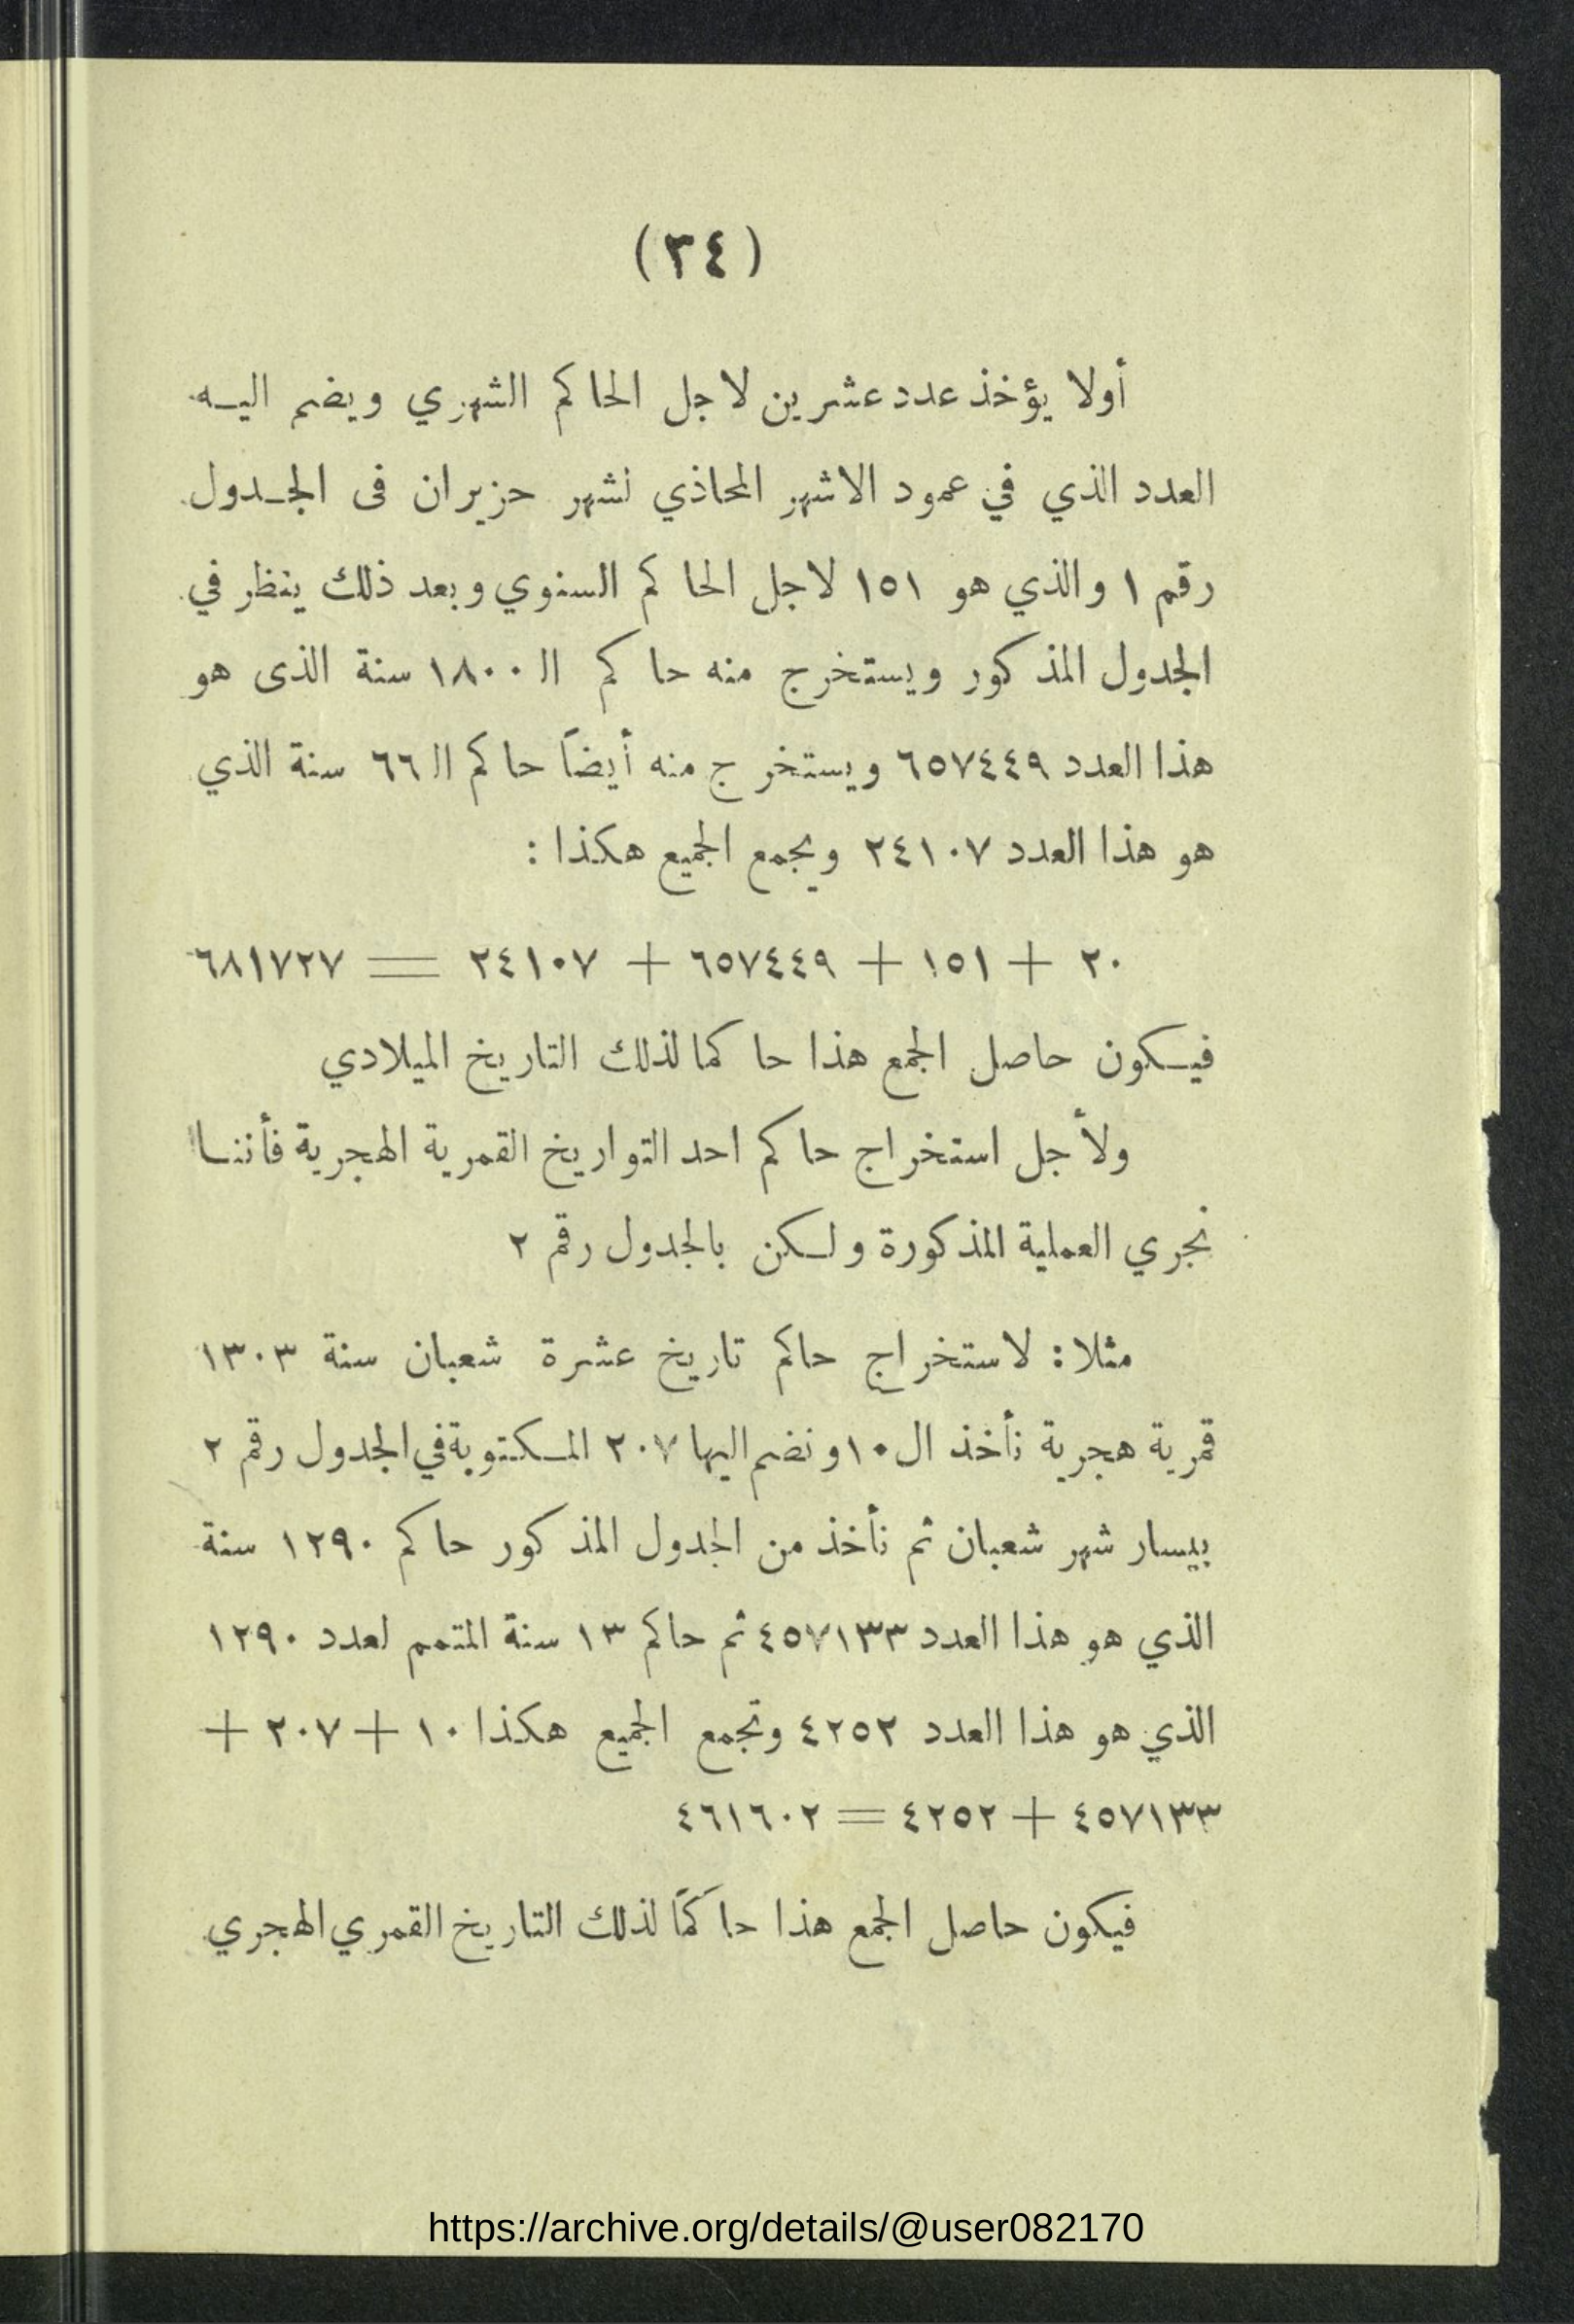 (٣٤)
أولا يؤخذ عدد عشرين لاجل الحاكم الشهري ويضم اليه
العدد الذي في عمود الاشهر المحاذي لشهر حزيران فى الجدول
رقم ١ والذي هو ١٥١ لاجل الحاكم السنوي وبعد ذلك ينظر في
الجدول المذكور ويستخرج منه حاكم الـ ١٨٠٠ سنة الذى هو
هذا العدد ٦٥٧٤٤٩ ويستخرج منه أيضاً حاكم الـ ٦٦ سنة الذي
هو هذا العدد ٢٤١٠٧ ويجمع الجميع هكذا :
٢٠ + ١٥١ + ٦٥٧٤٤٩ + ٢٤١٠٧ = ٦٨١٧٢٧
فيكون حاصل الجمع هذا حاكما لذلك التاريخ الميلادي
ولأجل استخراج حاكم احد التواريخ القمرية الهجرية فأننا
نجري العملية المذكورة ولكن بالجدول رقم ٢
مثلا : لاستخراج حاكم تاريخ عشرة شعبان سنة ١٣٠٣
قمرية هجرية نأخذ ال ١٠ ونضم اليها ٢٠٧ المكتوبة في الجدول رقم ٢
بيسار شهر شعبان ثم نأخذ من الجدول المذكور حاكم ١٢٩٠ سنة
الذي هو هذا العدد ٤٥٧١٣٣ ثم حاكم ١٣ سنة المتمم لعدد ١٢٩٠
الذي هو هذا العدد ٤٢٥٢ وتجمع الجميع هكذا ١٠ + ٢٠٧ +
٤٥٧١٣٣ + ٤٢٥٢ = ٤٦١٦٠٢
فيكون حاصل الجمع هذا حاكمًا لذلك التاريخ القمري الهجري
https://archive.org/details/@user082170